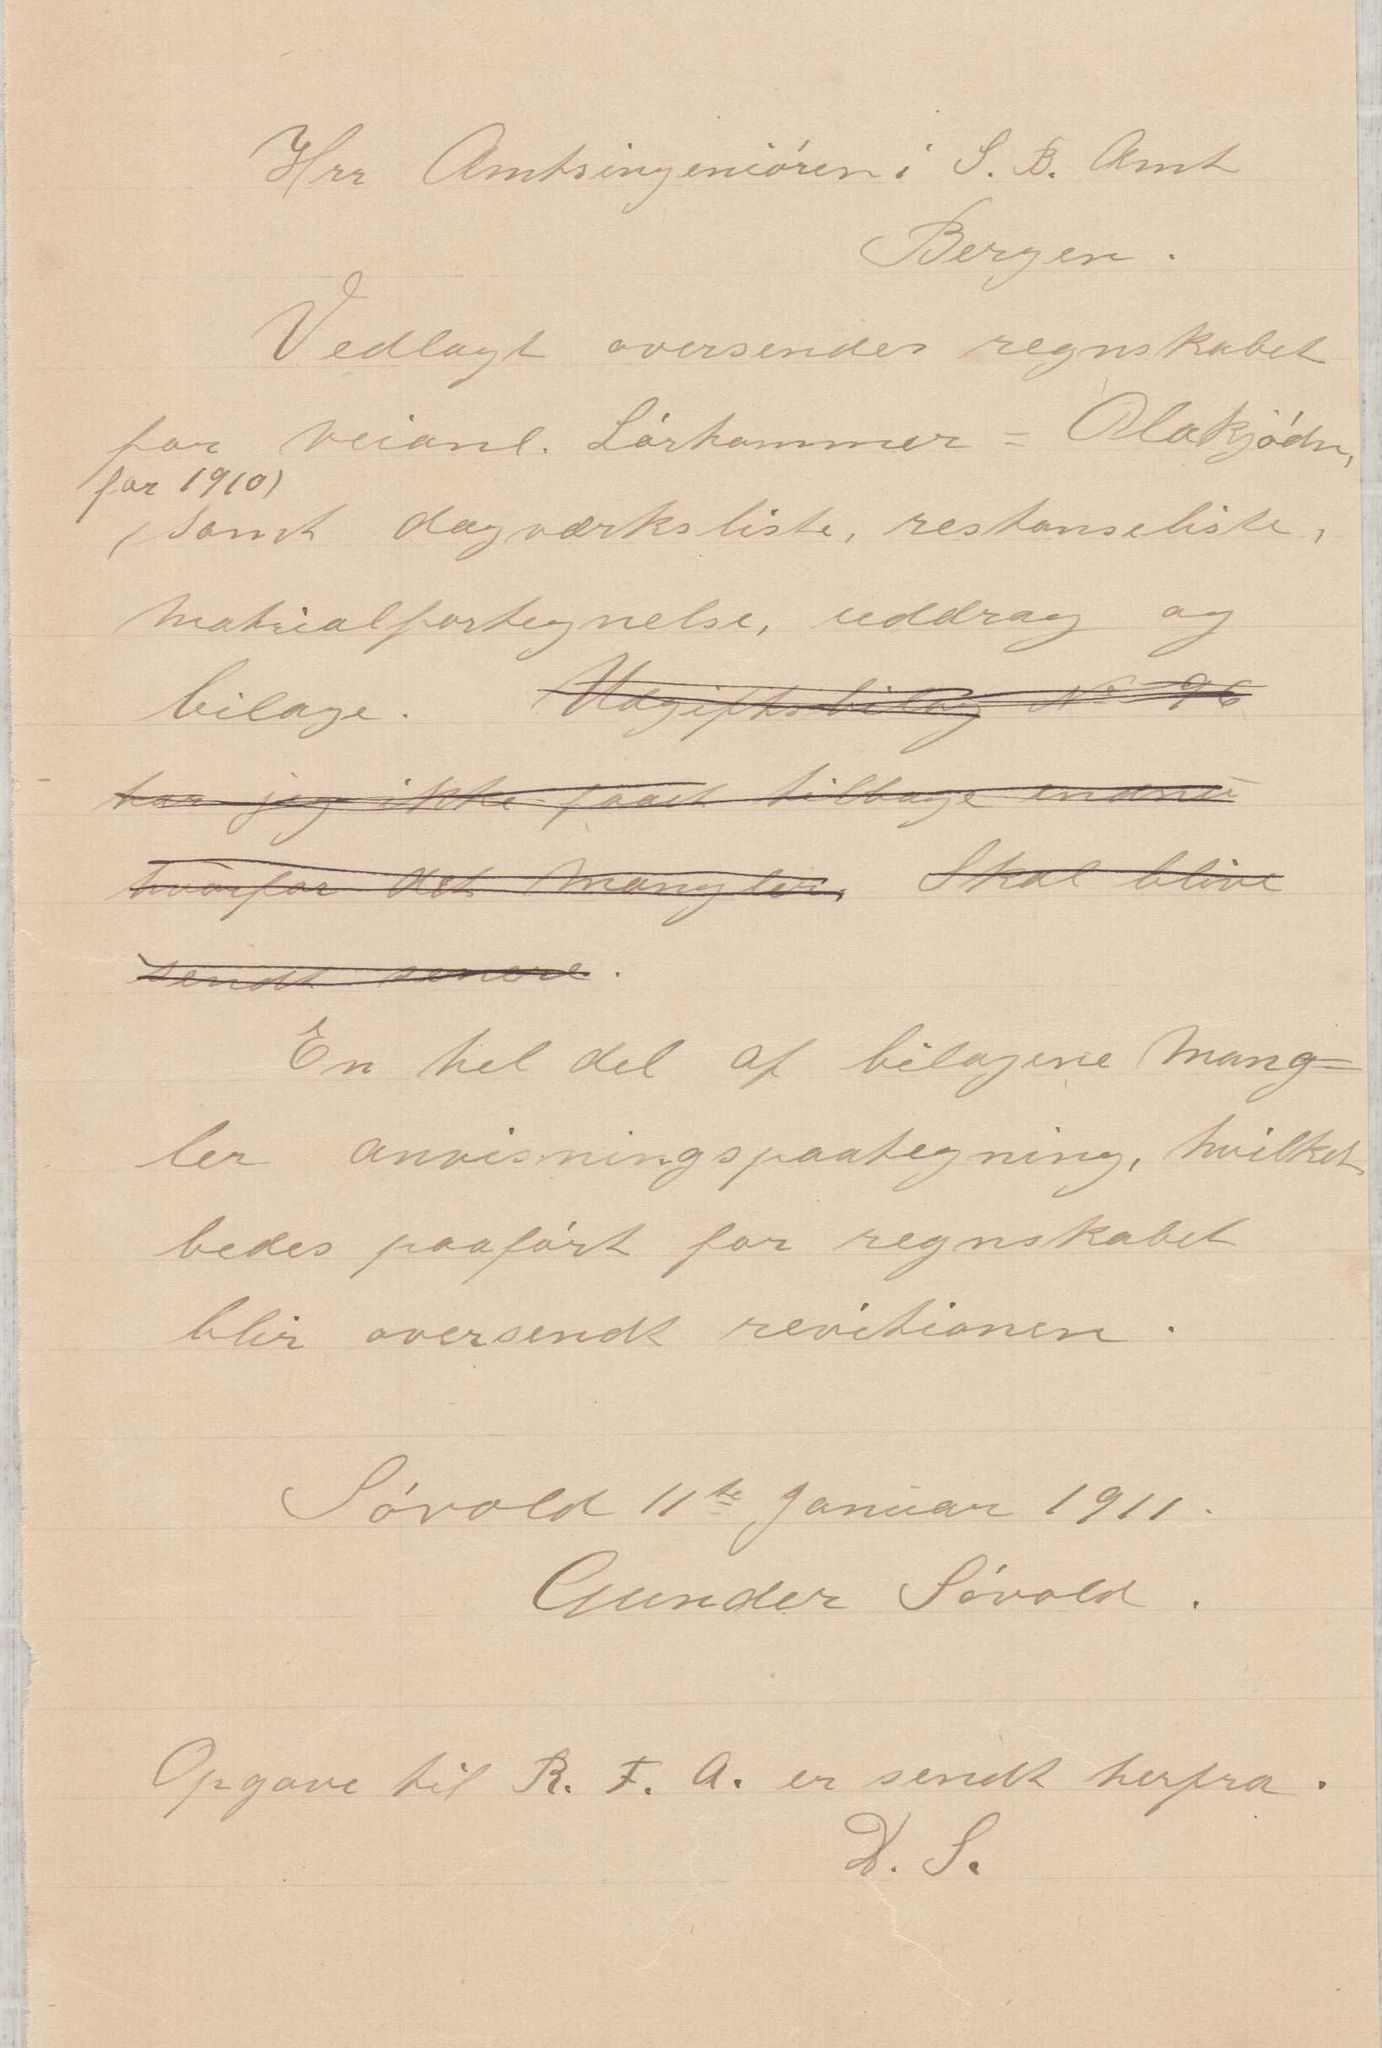 Hrr Amtsingeniören i S. B. Amt
Bergen.
Vedlagt oversendes regnskabet
for veianl. Lörhammer = Olakjödn,
for 1910)
(samt dagværksliste, restanseliste,
matrialfortegnelse, uddrag og
bilage. Udgiftsbilag No 96
har jeg ikke faaet tilbage endnu
hvorfor det mangler, Skal blive
sendt senere.
En hel del af bilagene mang=
ler anvisningspaategning, hvilket
bedes paaført for regnskabet
blir oversendt revitionen.
Sövold 11te Januar 1911.
Gunder Sövold.
Opgave til R. F. A. er sendt herfra.
D. S.